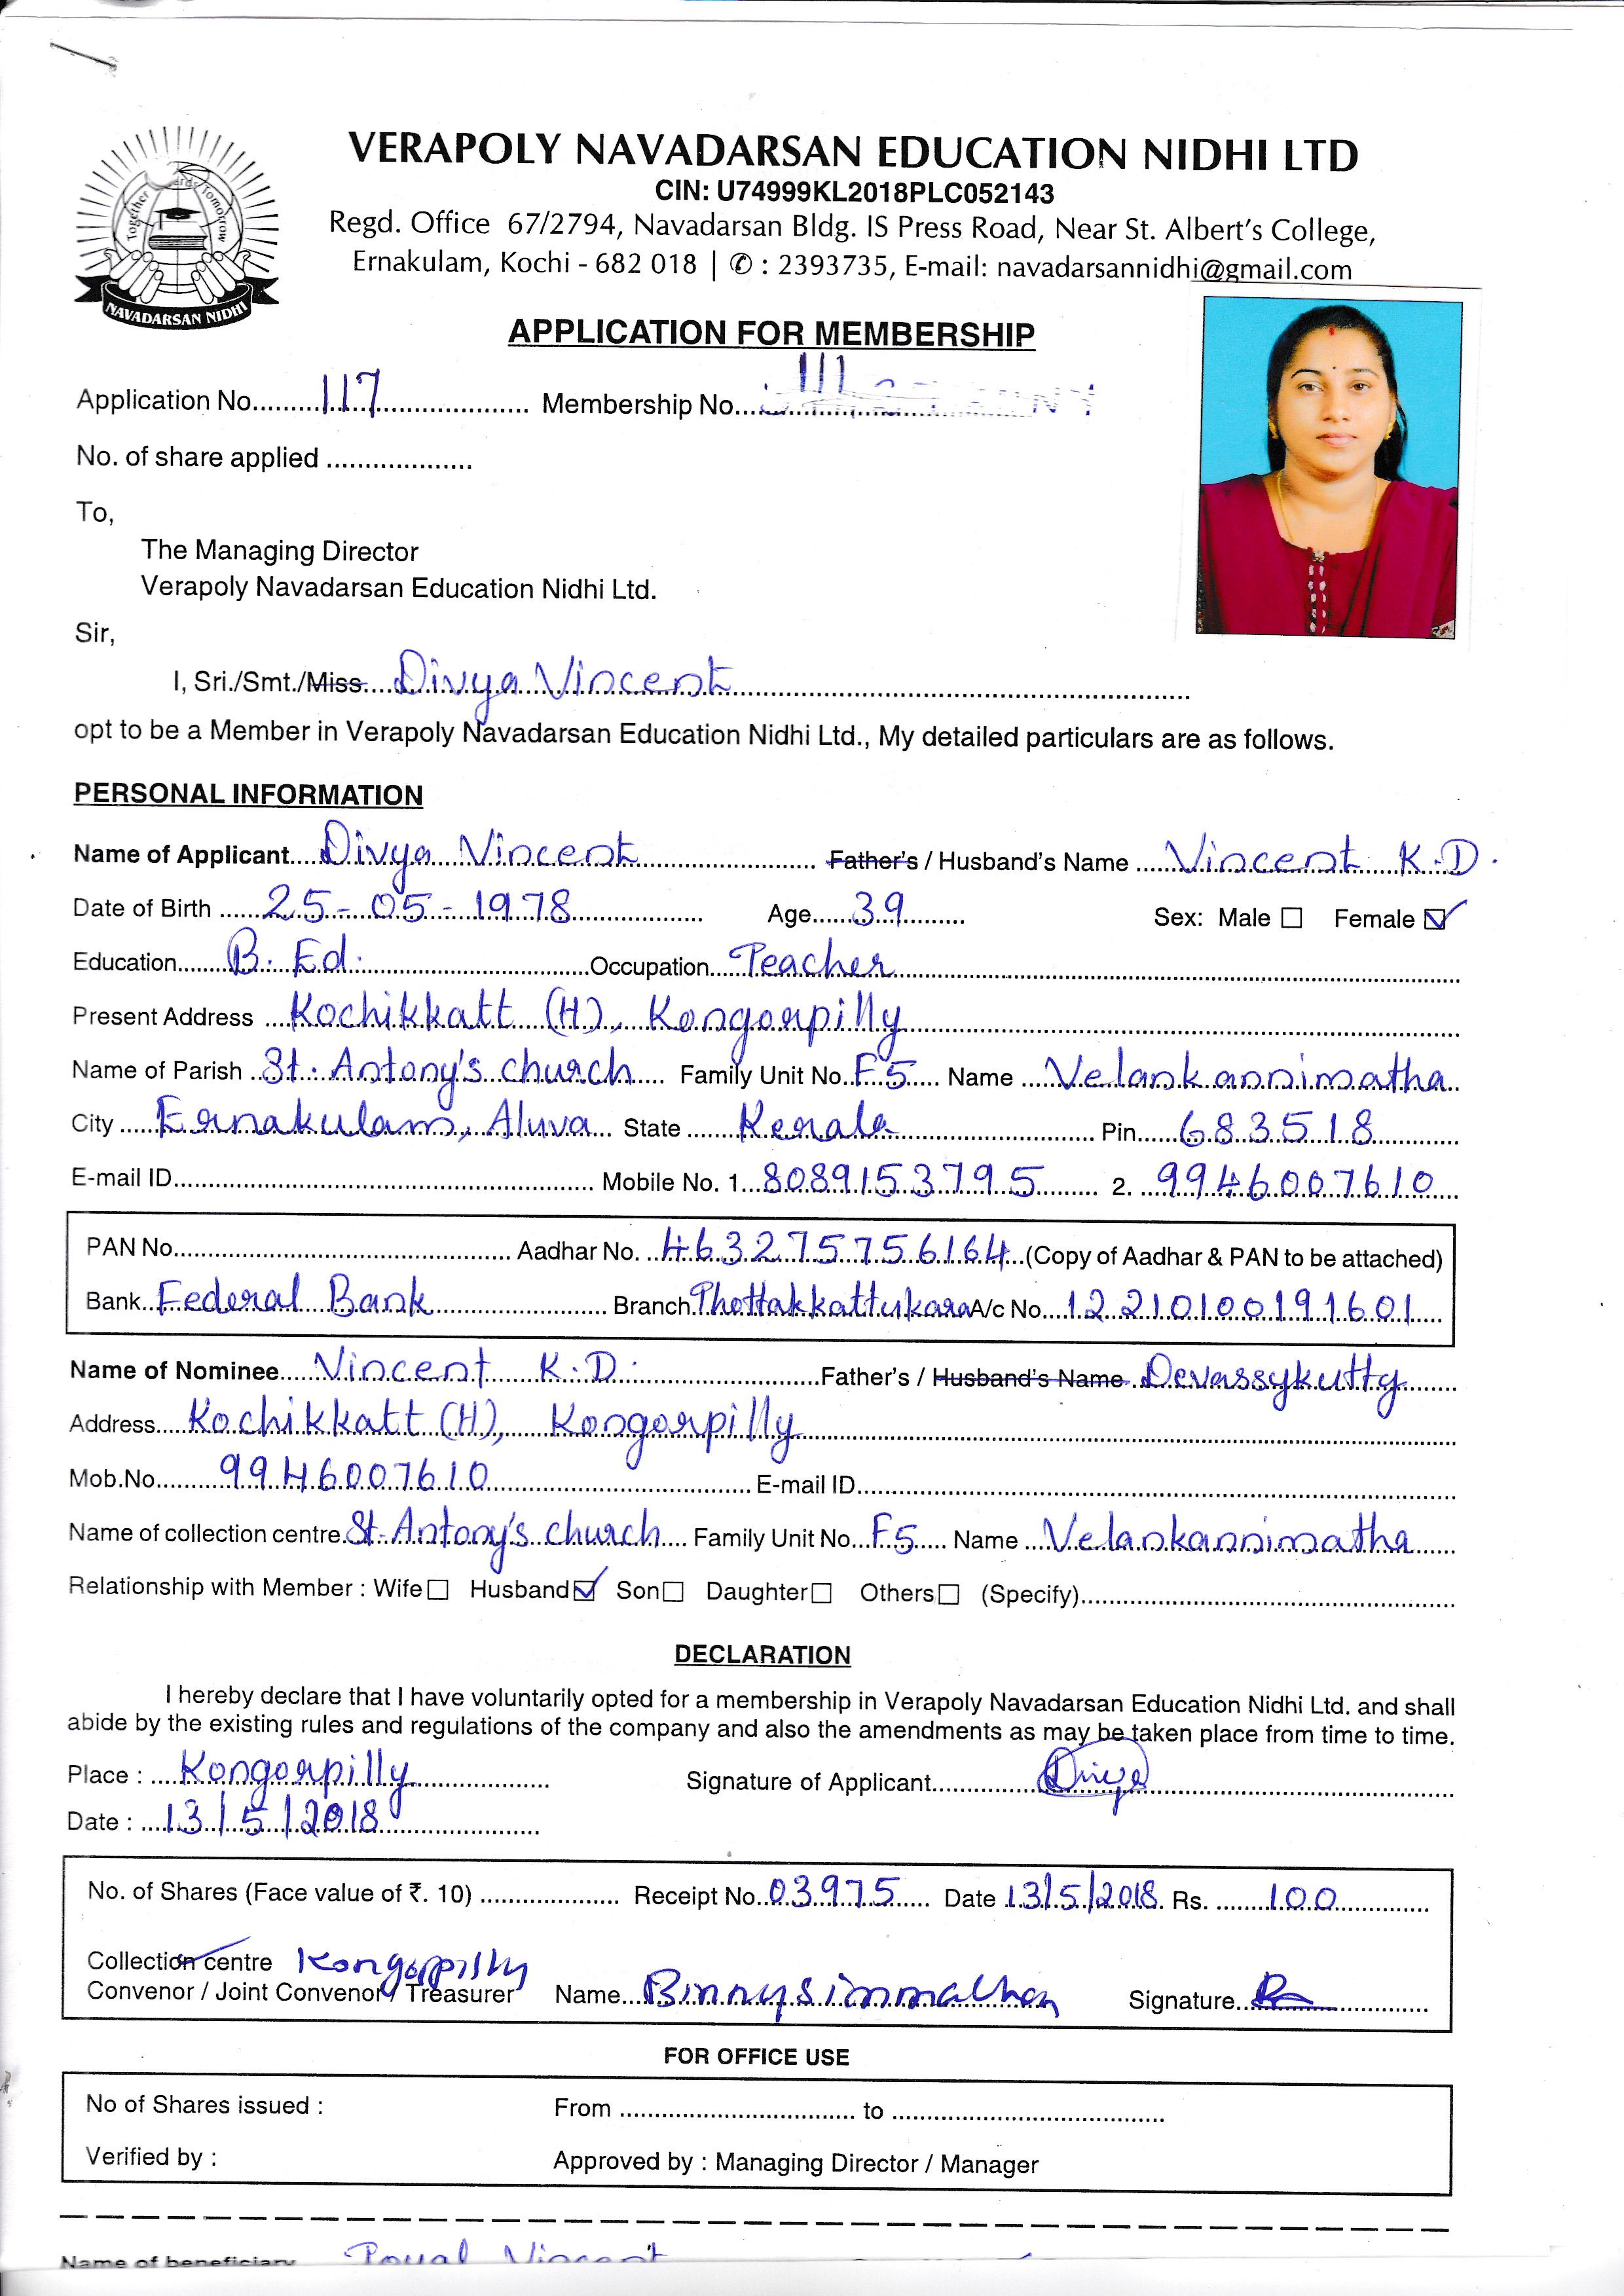 VERAPOLY NAVADARSAN EDUCATION NIDHI LTD
CIN: U74999KL2018PLC052143
Regd. Office 67/2794, Navadarsan Bldg. IS Press Road, Near St. Albert's College,
Ernakulam, Kochi - 682 018 | ✆ : 2393735, E-mail: navadarsannidhi@gmail.com
Together Towards Tomorrow
NAVADARSAN NIDHI
APPLICATION FOR MEMBERSHIP
Application No. 117 Membership No.
No. of share applied
To,
The Managing Director
Verapoly Navadarsan Education Nidhi Ltd.
Sir,
I, Sri./Smt./Miss. Divya Vincent
opt to be a Member in Verapoly Navadarsan Education Nidhi Ltd., My detailed particulars are as follows.
PERSONAL INFORMATION
Name of Applicant Divya Vincent Father's / Husband's Name Vincent K.D.
Date of Birth 25-05-1978 Age 39 Sex: Male ☐ Female ☑
Education B. Ed. Occupation Teacher
Present Address Kochikkatt (H), Kongorpilly
Name of Parish St. Antony's church Family Unit No. F5 Name Velankannimatha
City Ernakulam, Aluva State Kerala Pin 683518
E-mail ID Mobile No. 1 8089153795 2. 9946007610
PAN No. Aadhar No. 463275756164 (Copy of Aadhar & PAN to be attached)
Bank Federal Bank Branch Thottakkattukara A/c No. 12210100191601
Name of Nominee Vincent K.D. Father's / Husband's Name Devassykutty
Address Kochikkatt (H), Kongorpilly
Mob.No. 9946007610 E-mail ID
Name of collection centre St. Antony's church Family Unit No. F5 Name Velankannimatha
Relationship with Member : Wife ☐ Husband ☑ Son ☐ Daughter ☐ Others ☐ (Specify)
DECLARATION
I hereby declare that I have voluntarily opted for a membership in Verapoly Navadarsan Education Nidhi Ltd. and shall
abide by the existing rules and regulations of the company and also the amendments as may be taken place from time to time.
Place : Kongorpilly Signature of Applicant Divya
Date : 13/5/2018
No. of Shares (Face value of ₹. 10) Receipt No. 03975 Date 13/5/2018 Rs. 100
Collection centre Kongorpilly
Convenor / Joint Convenor / Treasurer Name Binnysimmathan Signature
FOR OFFICE USE
No of Shares issued : From to
Verified by : Approved by : Managing Director / Manager
Name of beneficiary Vincent